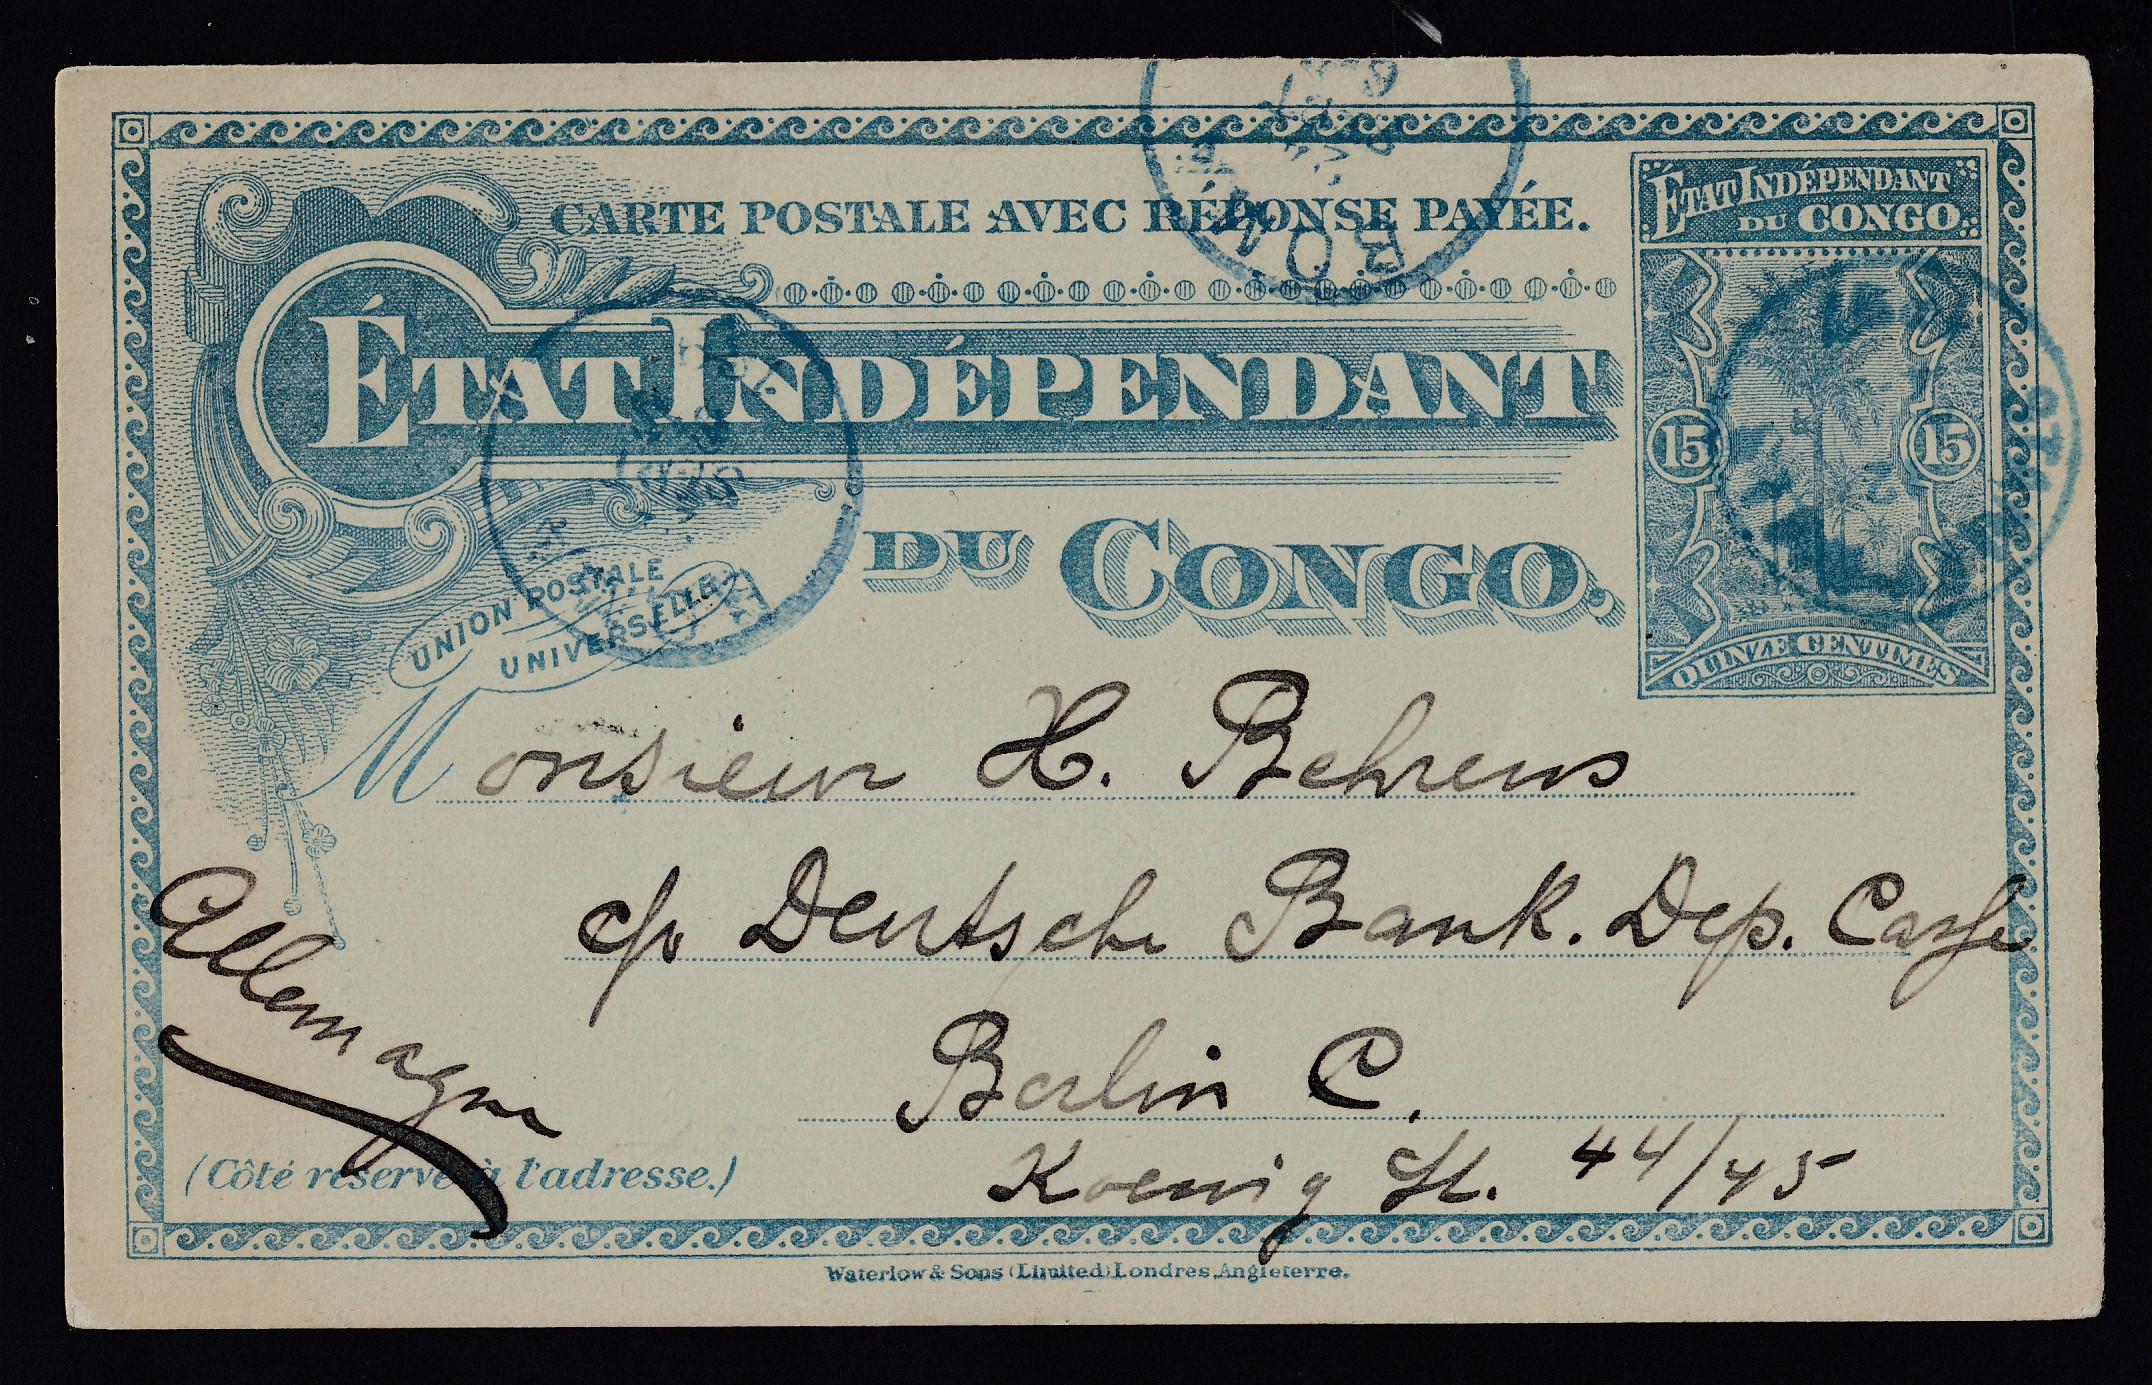 CARTE POSTALE AVEC RÉPONSE PAYÉE.
ÉTAT INDÉPENDANT
DU CONGO.
ÉTAT INDÉPENDANT
DU CONGO
15 15
QUINZE CENTIMES
BOMA
UNION POSTALE
UNIVERSELLE
Monsieur H. Behrens
c/o Deutsche Bank. Dep. Casse
Berlin C.
Koenig St. 44/45
Allemagne
(Côté réservé à l'adresse.)
Waterlow & Sons (Limited) Londres, Angleterre.